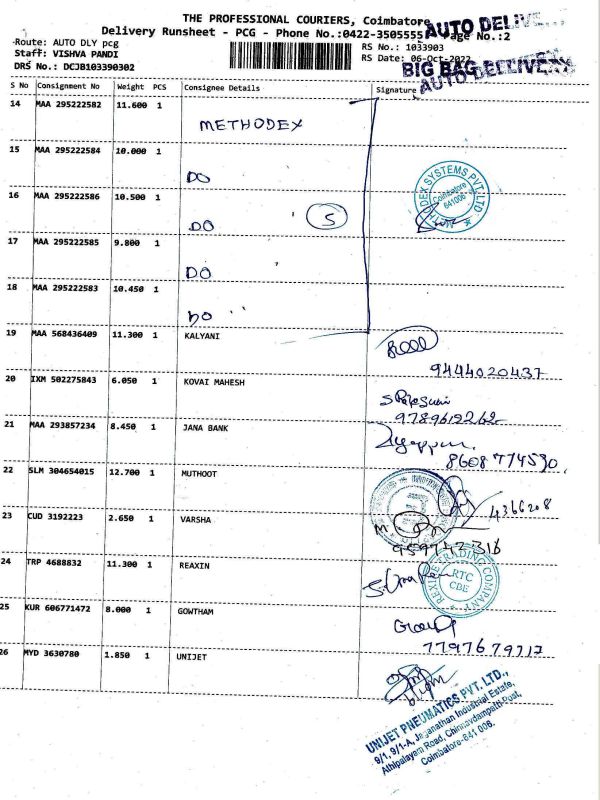 THE PROFESSIONAL COURIERS, Coimbatore
AUTO DELIVE
Delivery Runsheet - PCG - Phone No.:0422-3505555 Page No.:2
Route: AUTO DLY pcg
RS No.: 1033903
Staff: VISHVA PANDI
RS Date: 06-Oct-2022
DRS No.: DCJB103390302
BIG BAG DELIVERY
AUTO
S No Consignment No Weight PCS Consignee Details Signature
14 MAA 295222582 11.600 1 METHODEX
15 MAA 295222584 10.000 1 DO
16 MAA 295222586 10.500 1 DO 5
17 MAA 295222585 9.800 1 DO
18 MAA 295222583 10.450 1 DO
DEX SYSTEMS PVT. LTD
Coimbatore
641006
19 MAA 568436409 11.300 1 KALYANI
9444020437
20 IXM 502275843 6.050 1 KOVAI MAHESH
9789612262
21 MAA 293857234 8.450 1 JANA BANK
8608774530
22 SLM 304654015 12.700 1 MUTHOOT
4366208
23 CUD 3192223 2.650 1 VARSHA
24 TRP 4688832 11.300 1 REAXIN
TRADING COMPANY
RTC
CBE
25 KUR 606771472 8.000 1 GOWTHAM
26 MYD 3630780 1.850 1 UNIJET
UNIJET PNEUMATICS PVT. LTD.,
9/1, 9/1-A, Jeganathan Industrial Estate,
Athipalayam Road, Chinnavedampatti-Post,
Coimbatore-641 006.